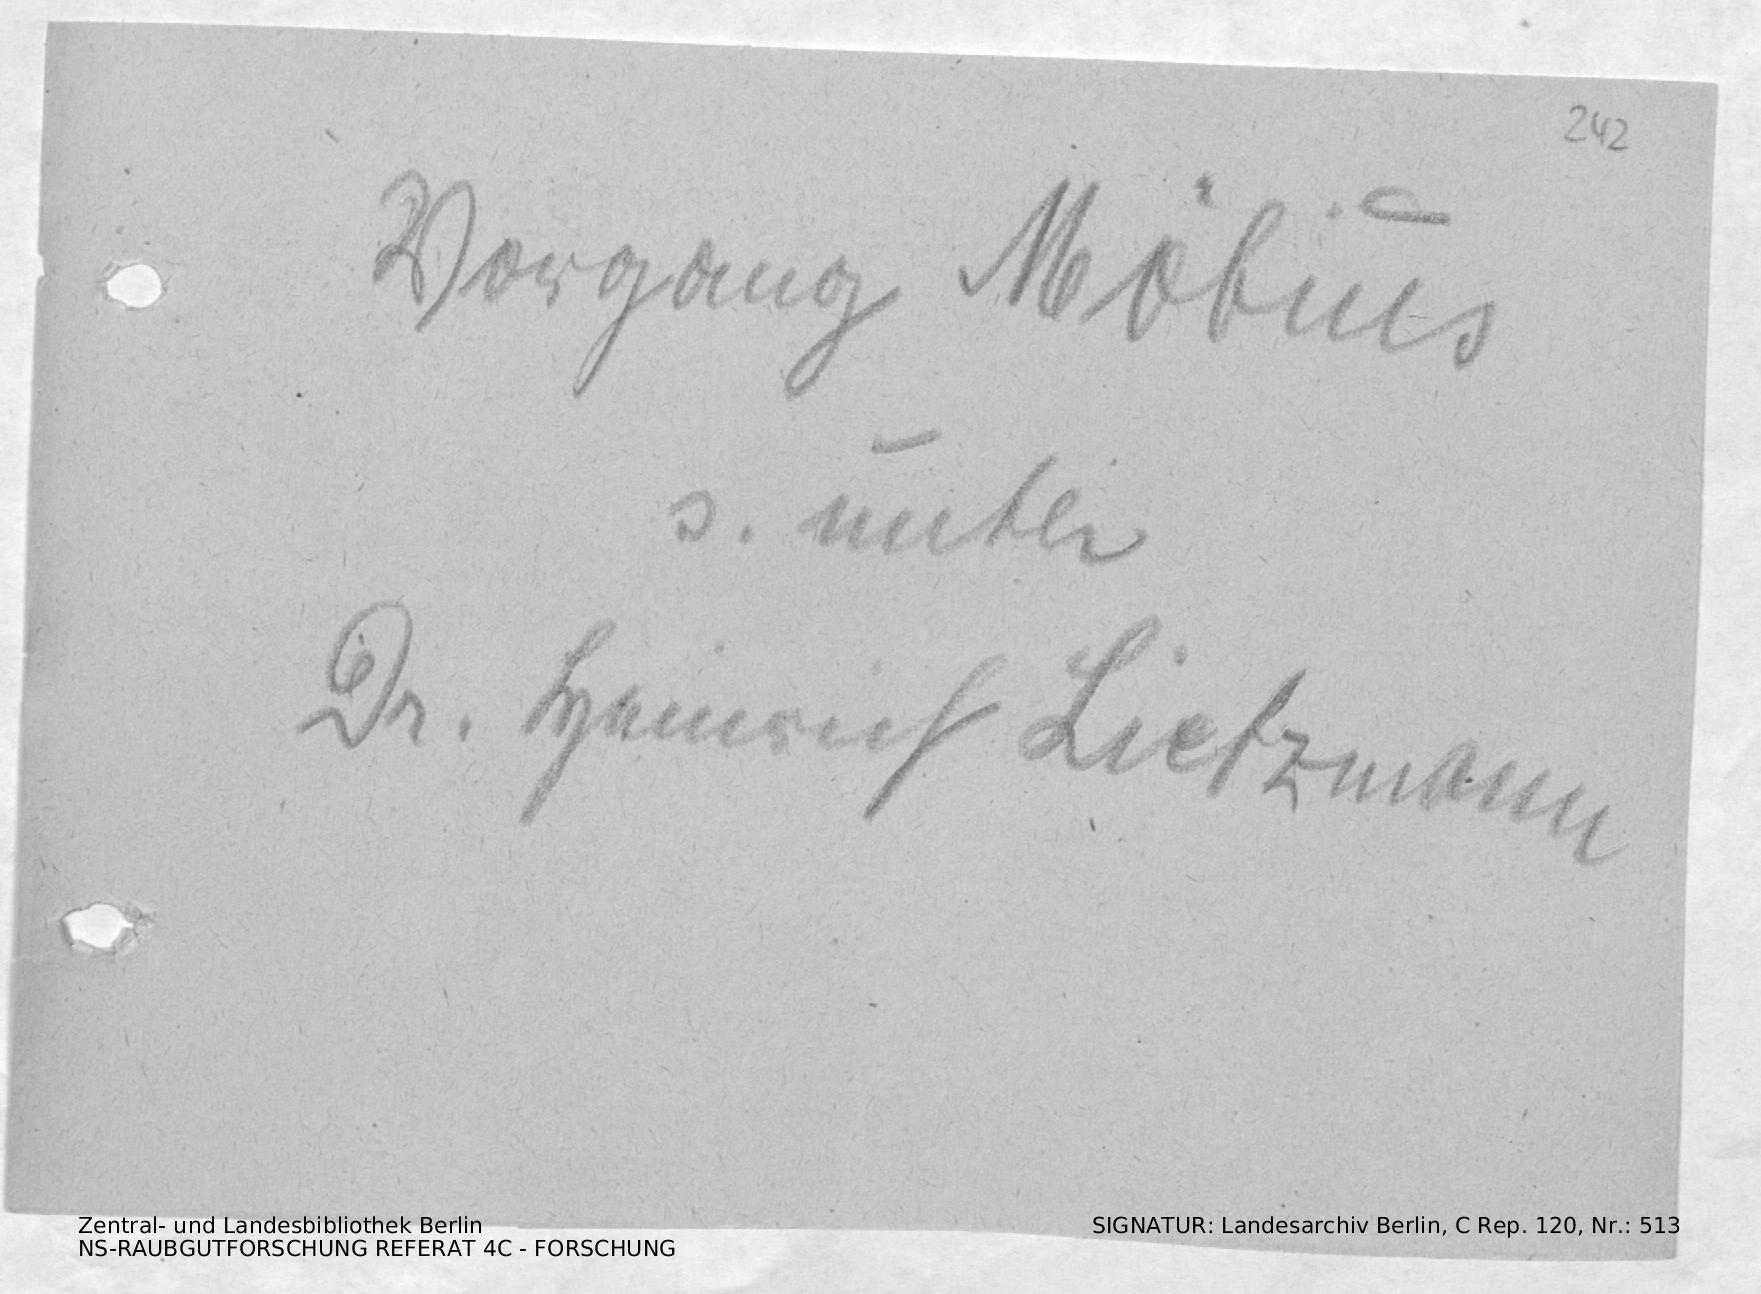 242
Vorgang Möbius
s. unter
Dr. Heinrich Lietzmann
Zentral- und Landesbibliothek Berlin
NS-RAUBGUTFORSCHUNG REFERAT 4C - FORSCHUNG
SIGNATUR: Landesarchiv Berlin, C Rep. 120, Nr.: 513